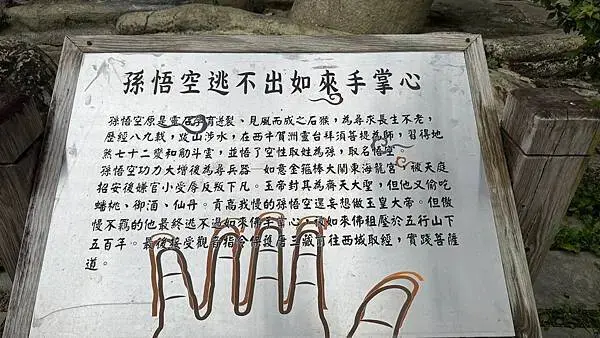 孫悟空逃不出如來手掌心
孫悟空原是靈石孕育迸裂、見風而成之石猴，為尋求長生不老，
歷經八九載，跋山涉水，在西牛賀洲靈台拜須菩提為師，習得地
煞七十二變和觔斗雲，並悟了空性取姓為孫，取名悟空。
孫悟空功力大增後為尋兵器—如意金箍棒大鬧東海龍宮，被天庭
招安後嫌官小受辱反叛下凡。玉帝封其為齊天大聖，但他又偷吃
蟠桃、御酒、仙丹。貢高我慢的孫悟空還妄想做玉皇大帝。但傲
慢不羈的他最終逃不過如來佛手掌心，被如來佛祖壓於五行山下
五百年。最後接受觀音指令保護唐三藏前往西域取經，實踐菩薩
道。